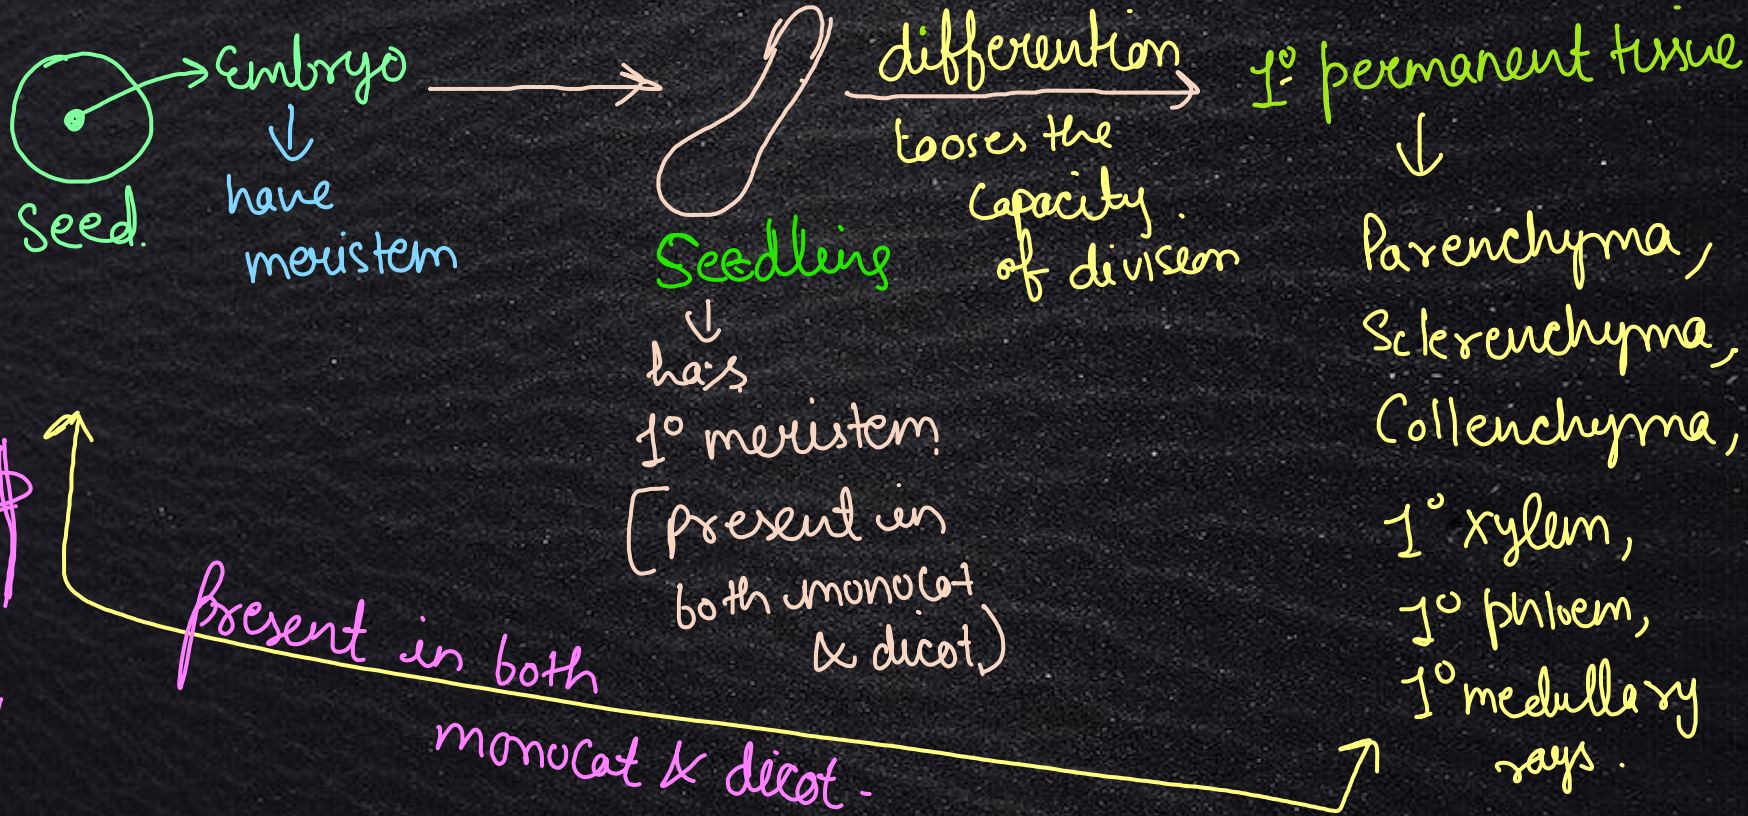 Seed.
Embryo
have
meristem
Seedling
has
1° meristem
[present in
both monocot
& dicot)
differention
looses the
capacity
of division
1° permanent tissue
Parenchyma,
Sclerenchyma,
Collenchyma,
1° xylem,
1° phloem,
1° medullary
rays.
Present in both
monocot & dicot.